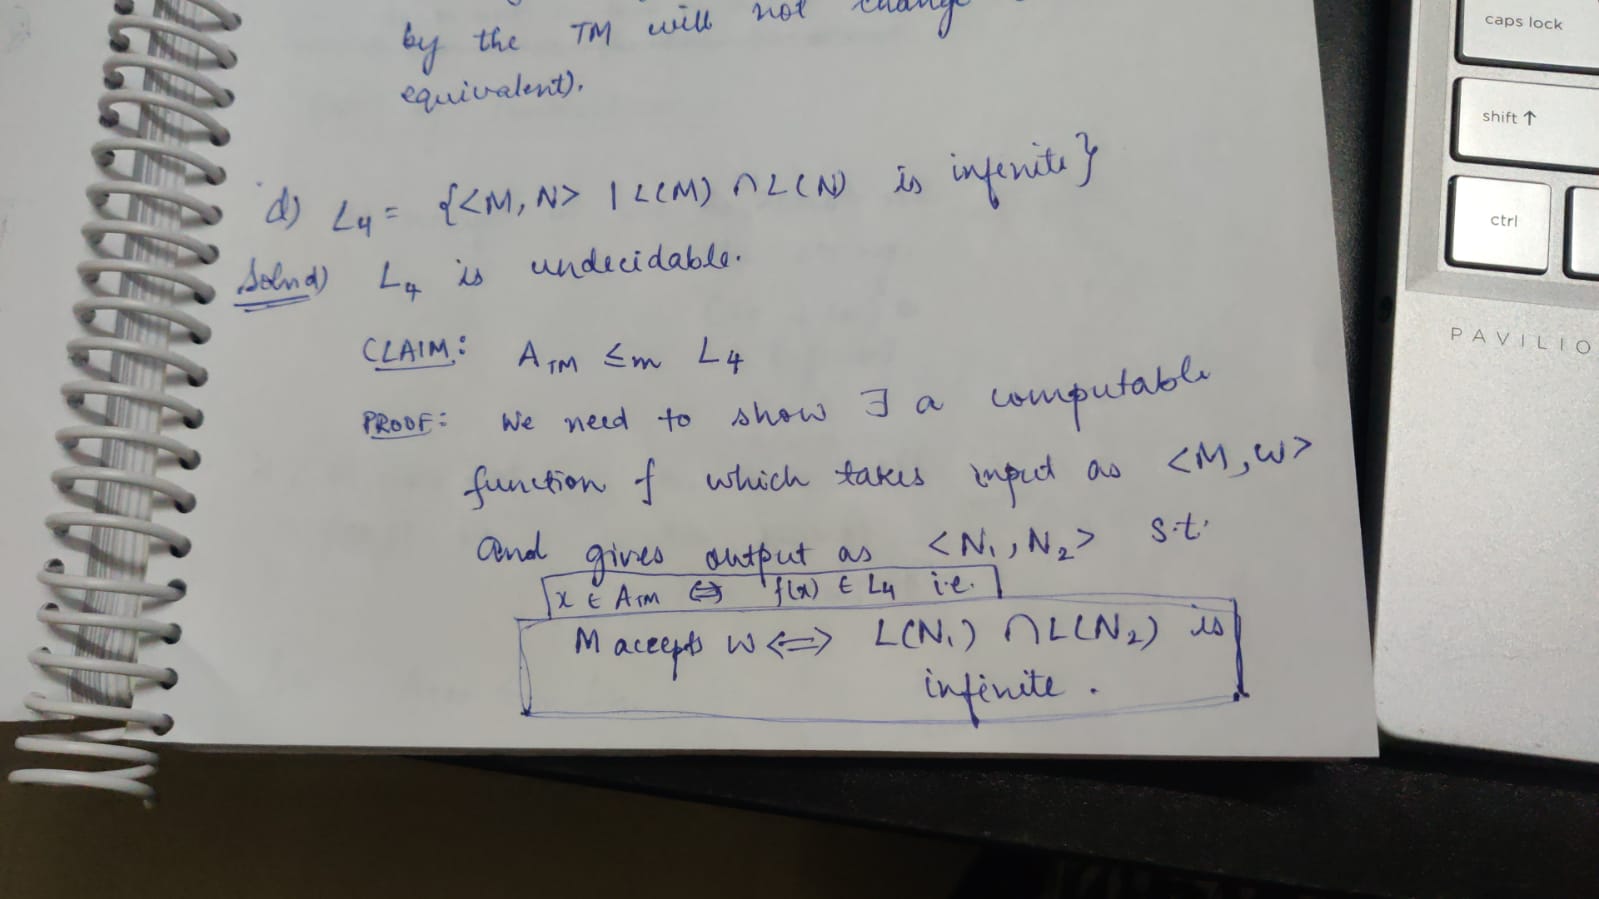 by the TM will not change
equivalent).
d) L4 = {<M, N> | L(M) ∩ L(N) is infenite}
Soln d) L4 is undecidable.
CLAIM: ATM ≤m L4
PROOF: We need to show ∃ a computable
function f which takes input as <M, w>
and gives output as <N1, N2> s.t.
x ∈ ATM ⇔ f(x) ∈ L4 i.e.
M accepts w ⇔ L(N1) ∩ L(N2) is
infenite.
caps lock
shift ↑
ctrl
PAVILIO